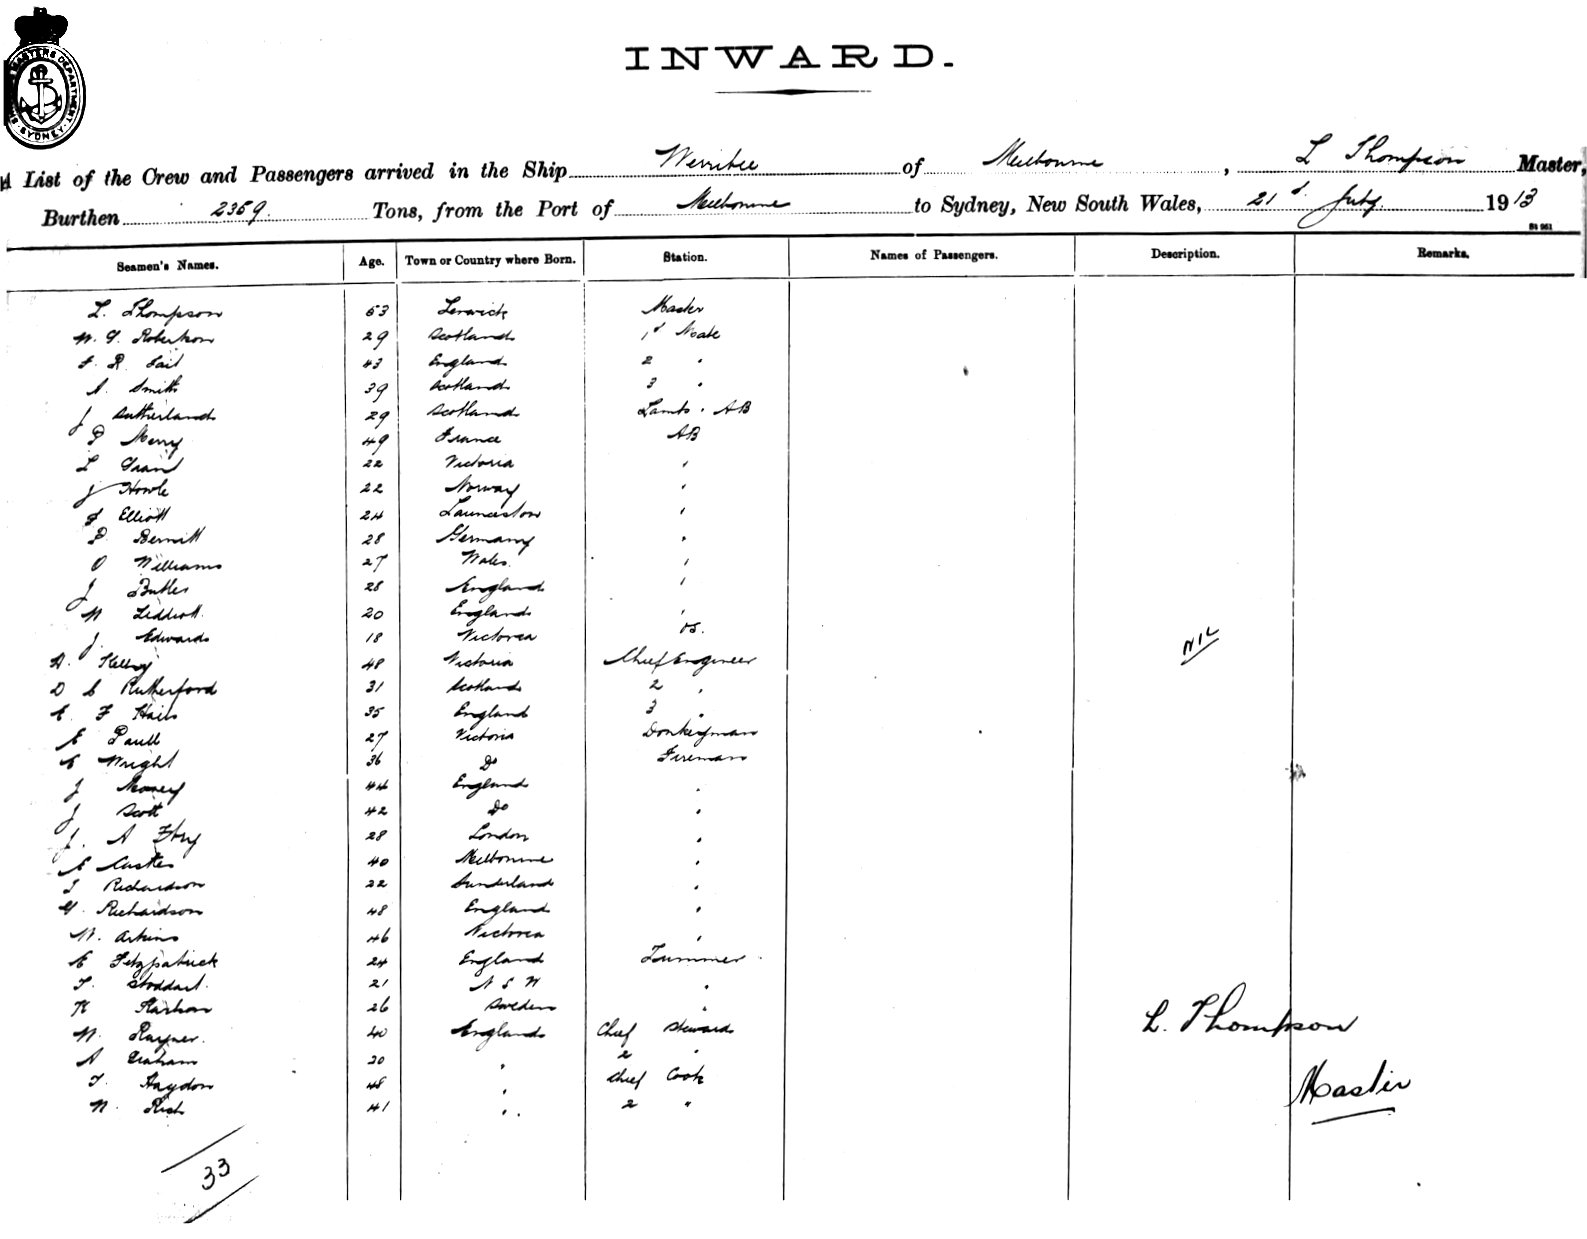 INWARD.
MASTERS DEPARTMENT
SYDNEY
List of the Crew and Passengers arrived in the Ship Werribee of Melbourne, L Thompson Master,
Burthen 2359. Tons, from the Port of Melbourne to Sydney, New South Wales, 21st July 1913
St 961
Seamen's Names. Age. Town or Country where Born. Station. Names of Passengers. Description. Remarks.
L. Thompson 53 Lerwick Master
W. G. Robertson 29 Scotland 1st Mate
R. 43 England 2 "
A. Smith 39 Scotland 3 "
J Sutherland 29 Scotland Lamps. AB
P Merry 49 France AB
L Grand 22 Victoria "
J Howle 22 Norway "
J Elliott 24 Launceston "
P 28 Germany "
O Williams 27 Wales. "
J Butler 28 England "
W 20 England "
J. Edwards 18 Victoria OS.
A. Kelly 48 Victoria Chief Engineer
NIL
D C Rutherford 31 Scotland 2 "
E. F 35 England 3 "
E Paull 27 Victoria Donkeyman
E Wright 36 Do Fireman
J 44 England "
J Scott 42 Do "
J. A 28 London "
E 40 Melbourne "
T Richardson 22 Sunderland "
G. Richardson 48 England "
W. 46 Victoria "
E Fitzpatrick 24 England Trimmer
T. Stoddart. 21 N S W "
K 26 Sweden "
W. Rayner. 40 England Chief Steward
L. Thompson
A Graham 30 " 2 "
T. Haydon 48 " Chief Cook
Master
W. 41 " 2 "
33